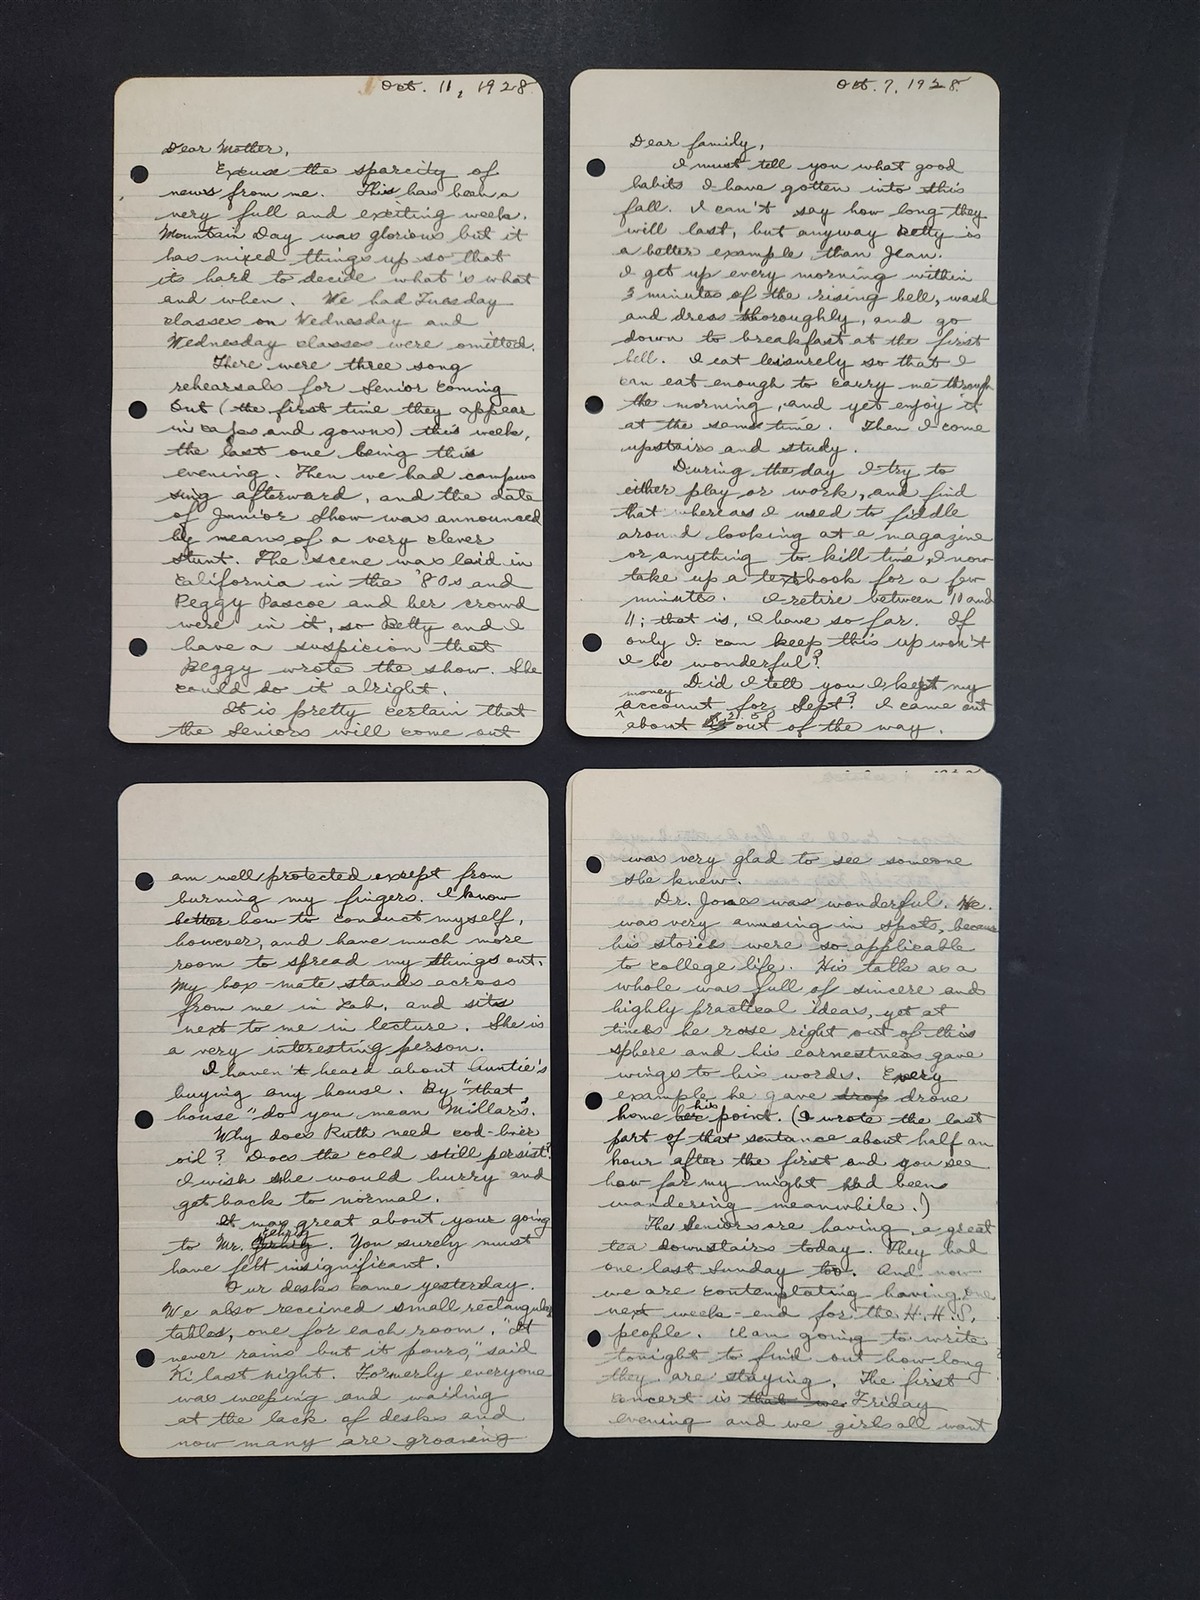 Oct. 11, 1928.
Dear Mother,
Excuse the sparcity of
news from me. This has been a
very full and exciting week.
Mountain Day was glorious but it
has mixed things up so that
its hard to decide what's what
and when. We had Tuesday
classes on Wednesday and
Wednesday classes were omitted.
There were three song
rehearsals for Senior coming
out (the first time they appear
in caps and gowns) this week,
the last one being this
evening. Then we had campus
sing afterward, and the date
of Junior Show was announced
by means of a very clever
stunt. The scene was laid in
California in the '80s and
Peggy Pascoe and her crowd
were in it, so Betty and I
have a suspicion that
Peggy wrote the show. She
could do it alright.
It is pretty certain that
the Seniors will come out
Oct. 7, 1928.
Dear family,
I must tell you what good
habits I have gotten into this
fall. I can't say how long they
will last, but anyway Betty is
a better example than Jean.
I get up every morning within
3 minutes of the rising bell, wash
and dress thoroughly, and go
down to breakfast at the first
bell. I eat leisurely so that I
can eat enough to carry me through
the morning, and yet enjoy it
at the same time. Then I come
upstairs and study.
During the day I try to
either play or work, and find
that whereas I used to fiddle
around looking at a magazine
or anything to kill time, I now
take up a textbook for a few
minutes. I retire between 10 and
11; that is, I have so far. If
only I can keep this up won't
I be wonderful?
Did I tell you I kept my
money
account for Sept? I came out
about out of the way.
am well protected except from
burning my fingers. I know
better how to conduct myself,
however, and have much more
room to spread my things out.
My box-mate stands across
from me in Lab, and sits
next to me in lecture. She is
a very interesting person.
I haven't heard about Auntie's
buying any house. By "that
house" do you mean Millar's.
Why does Ruth need cod-liver
oil? Does the cold still persist?
I wish she would hurry and
get back to normal.
It was great about your going
to Mr. You surely must
have felt insignificant.
Our desks came yesterday.
We also received small rectangular
tables, one for each room. "It
never rains but it pours," said
Ki last night. Formerly everyone
was weeping and wailing
at the lack of desks and
now many are groaning
was very glad to see someone
she knew.
Dr. Jones was wonderful. He
was very amusing in spots, because
his stories were so applicable
to college life. His talks as a
whole was full of sincere and
highly practical ideas, yet at
times he rose right out of this
sphere and his earnestness gave
wings to his words. Every
example he gave drop drove
home her his point. (I wrote the last
part of that sentance about half an
hour after the first and you see
how far my might had been
wandering meanwhile.)
The Seniors are having a great
tea downstairs today. They had
one last Sunday too. And now
we are contemplating having one
next week-end for the H.H.S.
people. I am going to write
tonight to find out how long
they are staying. The first
concert is that we Friday
evening and we girls all want